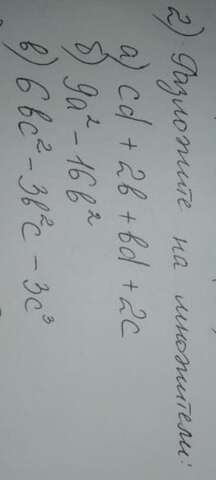 2) Разложите на множители:
а) cd + 2b + bd + 2c
б) 9a² - 16b²
в) 6bc² - 3b²c - 3c³